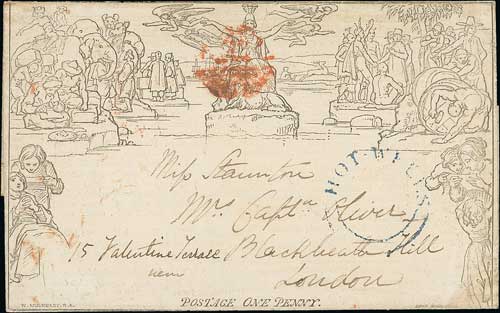 Miss Staunton
Mrs Captn Oliver
15 Valentine Terrace Blackheath Hill
near
London
POSTAGE ONE PENNY.
W. MULREADY, R.A.